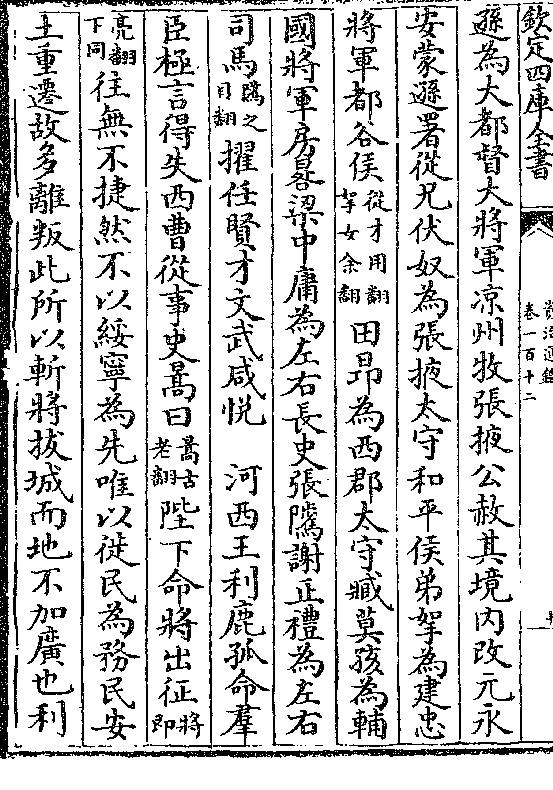 欽定四庫全書
資治通鑑
卷一百十二
遜為大都督大將軍涼州牧張掖公赦其境内改元永
安蒙遜署從兄伏奴為張掖太守和平侯弟挐為建忠
將軍都谷侯從才用翻挐女余翻田昻為西郡太守臧莫孩為輔
國將軍房晷梁中庸為左右長史張隲謝正禮為左右
司馬隲之日翻擢任賢才文武咸悦　河西王利鹿孤命羣
臣極言得失西曹從事史暠曰暠古老翻陛下命將出征將即
亮翻下同往無不捷然不以綏寧為先唯以徙民為務民安
土重遷故多離叛此所以斬將拔城而地不加廣也利